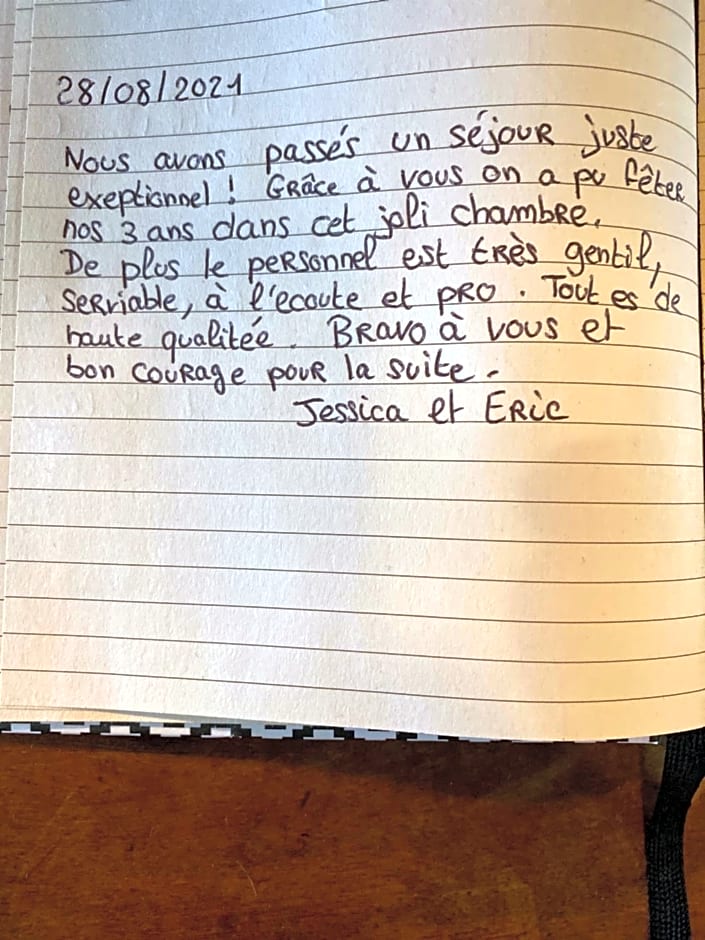 28/08/2021
Nous avons passés un séjour juste
exeptionnel! Grâce à vous on a pu fêter
nos 3 ans dans cet joli chambre.
De plus le personnel est très gentil,
serviable, à l'ecoute et pro. Tout es de
haute qualitée. Bravo à vous et
bon courage pour la suite.
Jessica et Eric